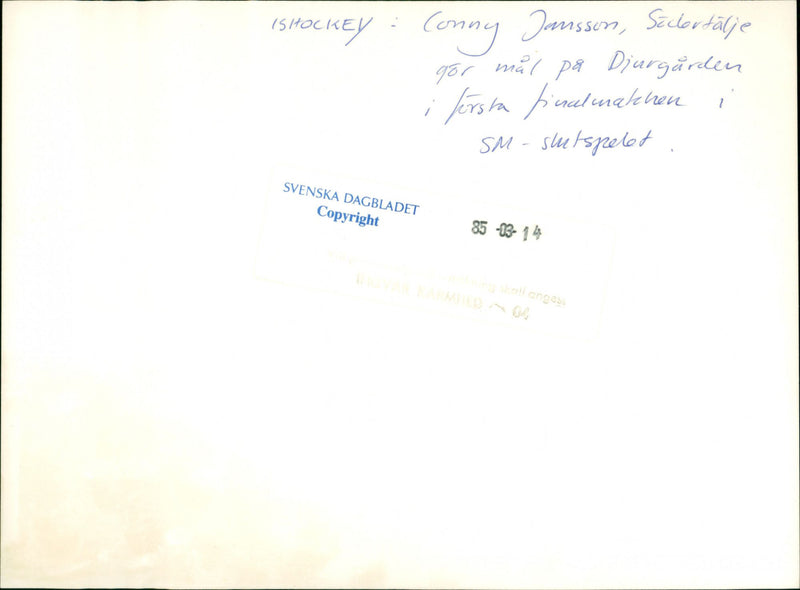 ISHOCKEY : Conny Jansson, Södertälje
gör mål på Djurgården
i första finalmatchen i
SM - slutspelet .
SVENSKA DAGBLADET
Copyright
85 -03- 14
skall anges
04